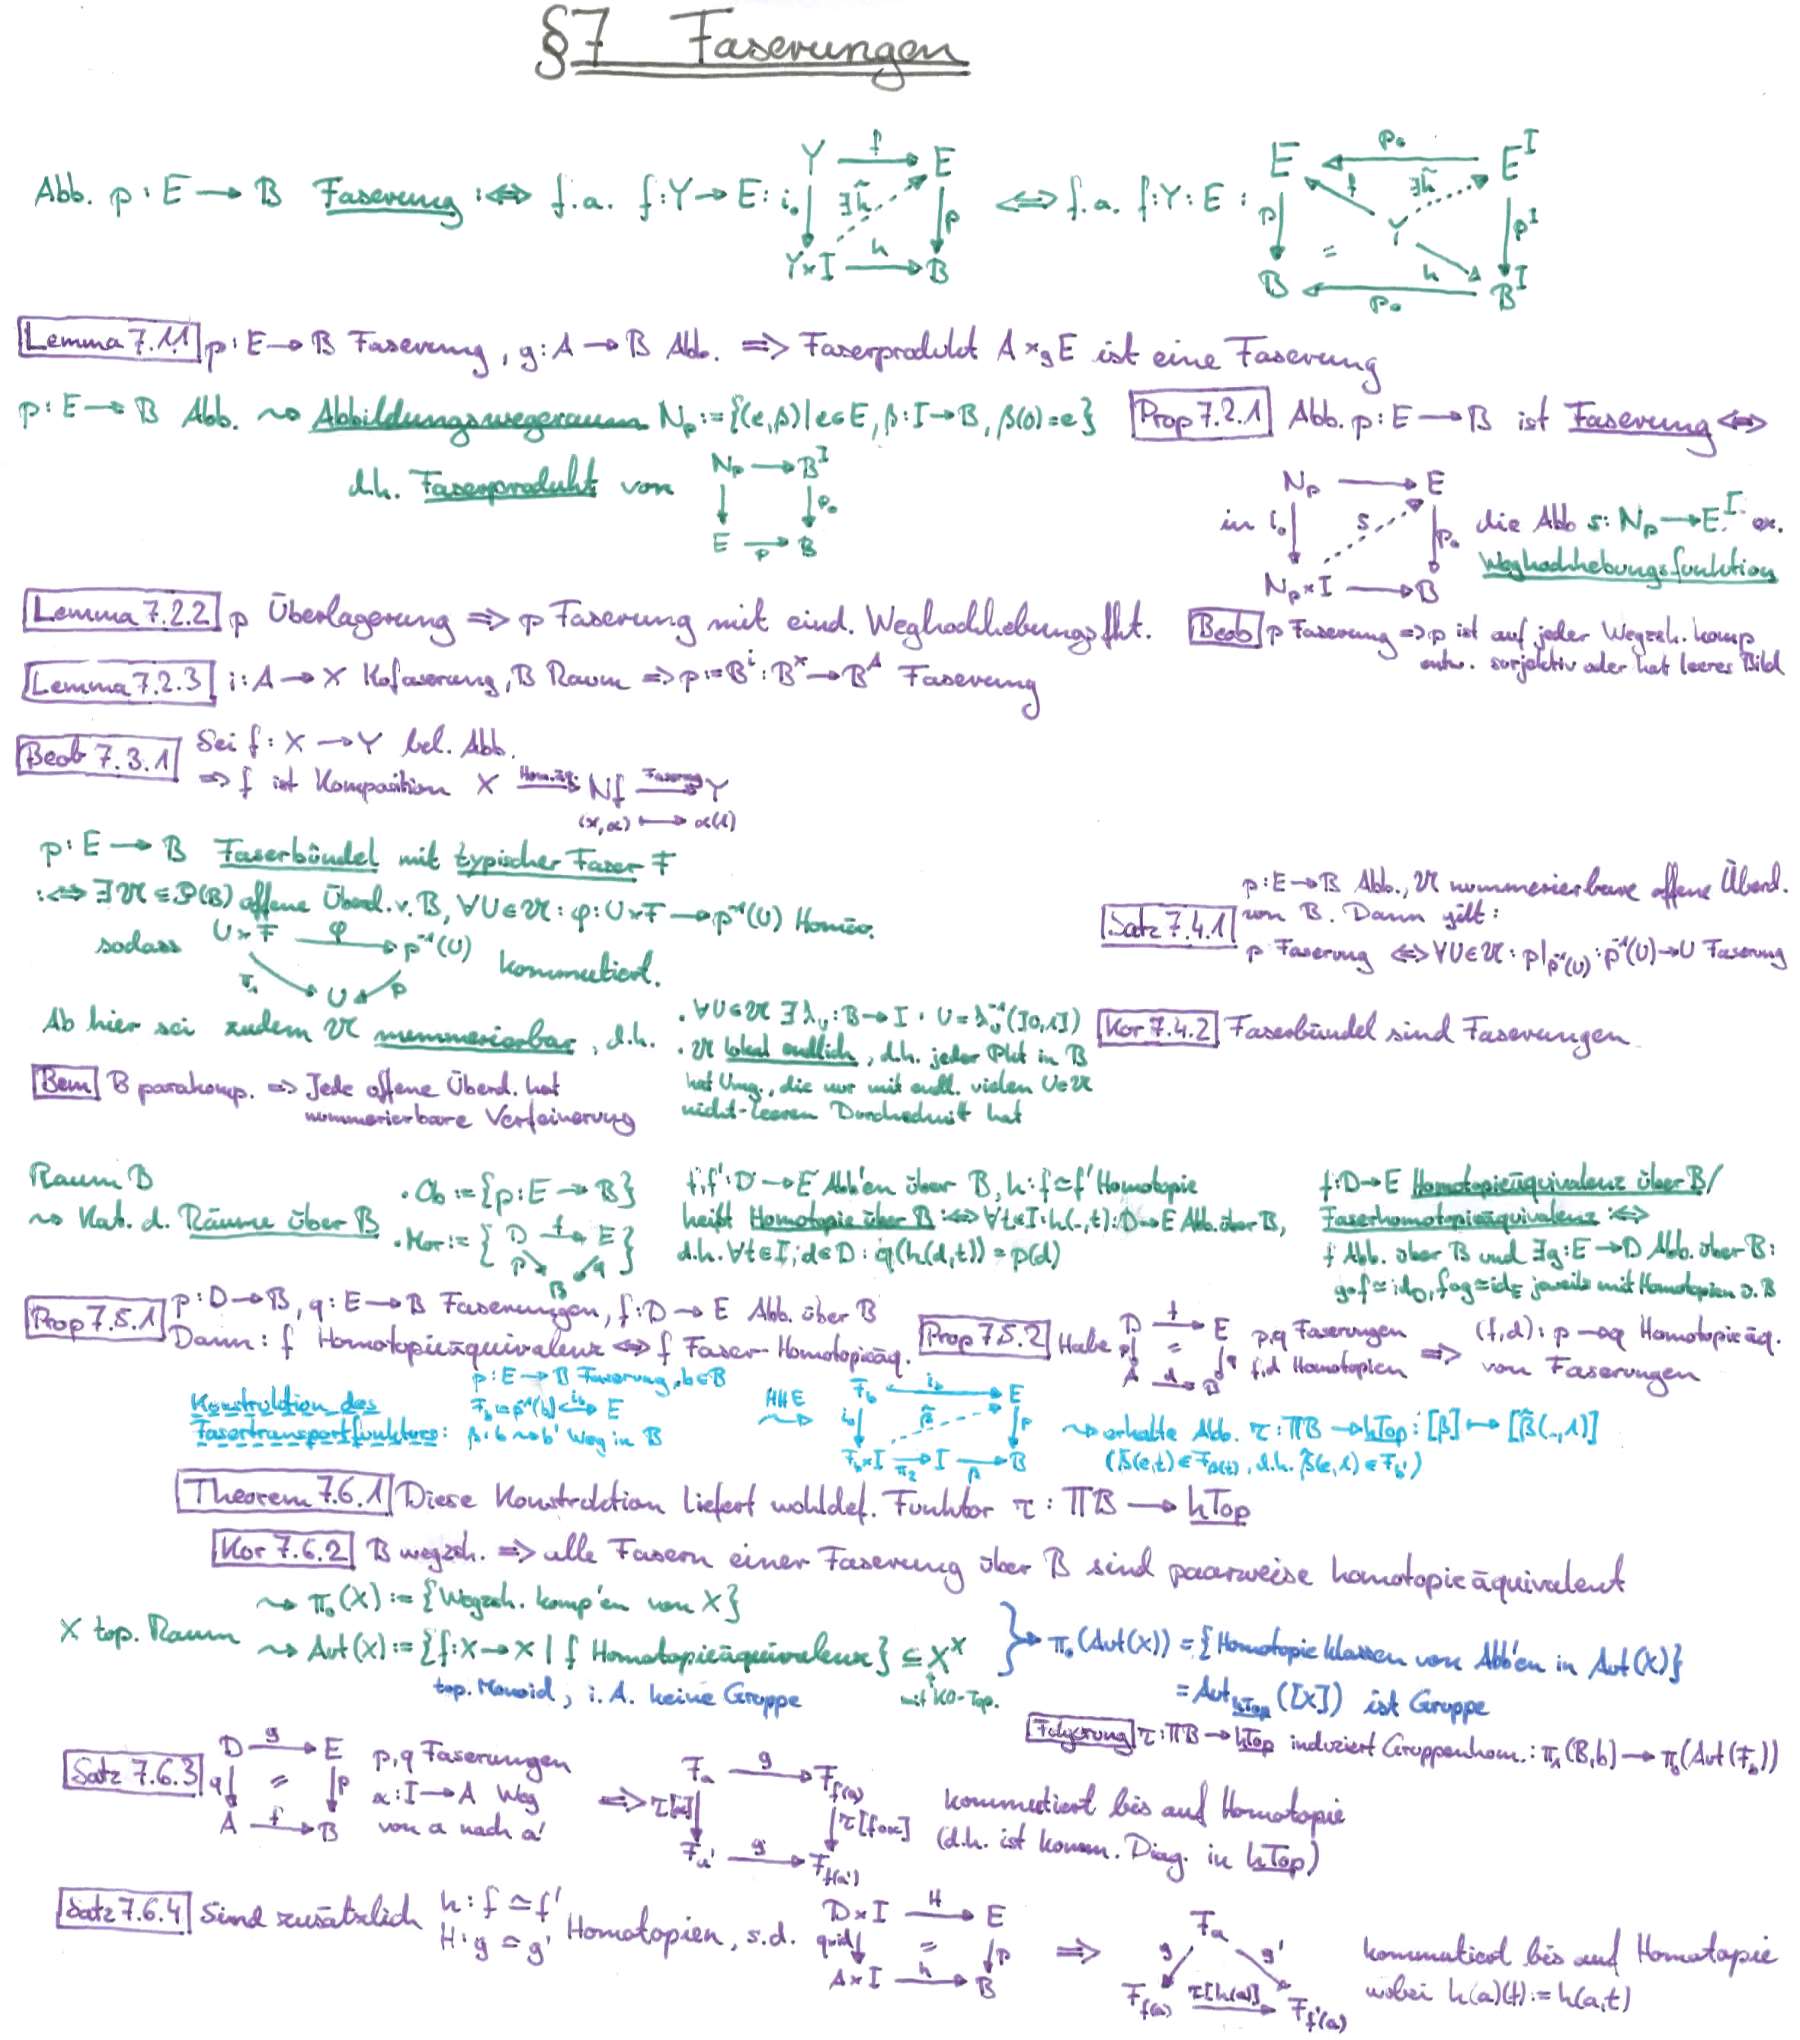 §7 Faserungen
Abb. p : E → B Faserung :⇔ f.a. f : Y → E : Y f→ E i₀ ∃h̃ p Y×I h→ B ⇔ f.a. f : Y : E : E ←p₀ Eᴵ p f ∃h̃ Y pᴵ = h B ←p₀ Bᴵ
Lemma 7.1.1 p : E → B Faserung, g : A → B Abb. ⇒ Faserprodukt A ×g E ist eine Faserung
p : E → B Abb. ⇝ Abbildungswegeraum Np := {(e,β) | e∈E, β : I → B, β(0) = e}
d.h. Faserprodukt von Np → Bᴵ p₀ E p→ B
Prop 7.2.1 Abb. p : E → B ist Faserung ⇔
in Np → E i₀ s p₀ Np×I → B die Abb s : Np → Eᴵ ex.
Weghochhebungsfunktion
Lemma 7.2.2 p Überlagerung ⇒ p Faserung mit eind. Weghochhebungsfkt.
Beob p Faserung ⇒ p ist auf jeder Wegzsh. komp
entw. surjektiv oder hat leeres Bild
Lemma 7.2.3 i : A → X Kofaserung, B Raum ⇒ p := Bⁱ : Bˣ → Bᴬ Faserung
Beob 7.3.1 Sei f : X → Y bel. Abb.
⇒ f ist Komposition X Hom.äq.→ Nf Faserung→ Y
(x,α) ↦ α(1)
p : E → B Faserbündel mit typischer Faser F
:⇔ ∃ 𝒰 ⊆ 𝒫(B) offene Überd. v. B, ∀U∈𝒰 : φ : U×F → p⁻¹(U) Homöo.
sodass U×F φ→ p⁻¹(U) π₁ U p kommutiert.
Satz 7.4.1 p : E → B Abb., 𝒰 nummerierbare offene Überd.
von B. Dann gilt:
p Faserung ⇔ ∀U∈𝒰 : p|p⁻¹(U) : p⁻¹(U) → U Faserung
Ab hier sei zudem 𝒰 nummerierbar, d.h. • ∀U∈𝒰 ∃ λᵤ : B → I : U = λᵤ⁻¹(]0,1])
• 𝒰 lokal endlich, d.h. jeder Pkt in B
hat Umg., die nur mit endl. vielen U∈𝒰
nicht-leeren Durchschnitt hat
Kor 7.4.2 Faserbündel sind Faserungen
Bem B parakomp. ⇒ Jede offene Überd. hat
nummerierbare Verfeinerung
Raum B
⇝ Kat. d. Räume über B • Ob := {p : E → B}
• Mor := { D f→ E p B q }
f,f' : D → E Abb'en über B, h : f ≃ f' Homotopie
heißt Homotopie über B :⇔ ∀t∈I : h(-,t) : D → E Abb. über B,
d.h. ∀t∈I, d∈D : q(h(d,t)) = p(d)
f : D → E Homotopieäquivalenz über B /
Faserhomotopieäquivalenz :⇔
f Abb. über B und ∃g : E → D Abb. über B :
g∘f ≃ id_D, f∘g ≃ id_E jeweils mit Homotopien ü. B
Prop 7.5.1 p : D → B, q : E → B Faserungen, f : D → E Abb. über B
Dann : f Homotopieäquivalenz ⇔ f Faser-Homotopieäq.
Prop 7.5.2 Habe D f→ E p = q A d→ B p,q Faserungen
f,d Homotopien ⇒ (f,d) : p → q Homotopieäq.
von Faserungen
Konstruktion des
Fasertransportfunktors: p : E → B Faserung, b∈B
F_b := p⁻¹(b) i_b↪ E
β : b ⇝ b' Weg in B
HHE ⇝ F_b i_b→ E i₀ β̃ p F_b×I π₂→ I β→ B
⇝ erhalte Abb. τ : ΠB → hTop : [β] ↦ [β̃(-,1)]
(β̃(e,t) ∈ F_β(t), d.h. β̃(e,1) ∈ F_b')
Theorem 7.6.1 Diese Konstruktion liefert wohldef. Funktor τ : ΠB → hTop
Kor 7.6.2 B wegzsh. ⇒ alle Fasern einer Faserung über B sind paarweise homotopieäquivalent
X top. Raum ⇝ π₀(X) := {Wegzsh. komp'en von X}
⇝ Aut(X) := {f : X → X | f Homotopieäquivalenz} ⊆ Xˣ
top. Monoid, i. A. keine Gruppe mit KO-Top.
} → π₀(Aut(X)) = {Homotopieklassen von Abb'en in Aut(X)}
= Aut_hTop([X]) ist Gruppe
Folgerung τ : ΠB → hTop induziert Gruppenhom. : π₁(B,b) → π₀(Aut(F_b))
Satz 7.6.3 D g→ E q = p A f→ B p,q Faserungen
α : I → A Weg
von a nach a'
⇒ F_a g→ F_f(a) τ[α] τ[f∘α] F_a' g→ F_f(a')
kommutiert bis auf Homotopie
(d.h. ist komm. Diag. in hTop)
Satz 7.6.4 Sind zusätzlich h : f ≃ f'
H : g ≃ g' Homotopien, s.d. D×I H→ E q×id = p A×I h→ B
⇒ F_a g g' F_f(a) τ[h(a)]→ F_f'(a)
kommutiert bis auf Homotopie
wobei h(a)(t) := h(a,t)